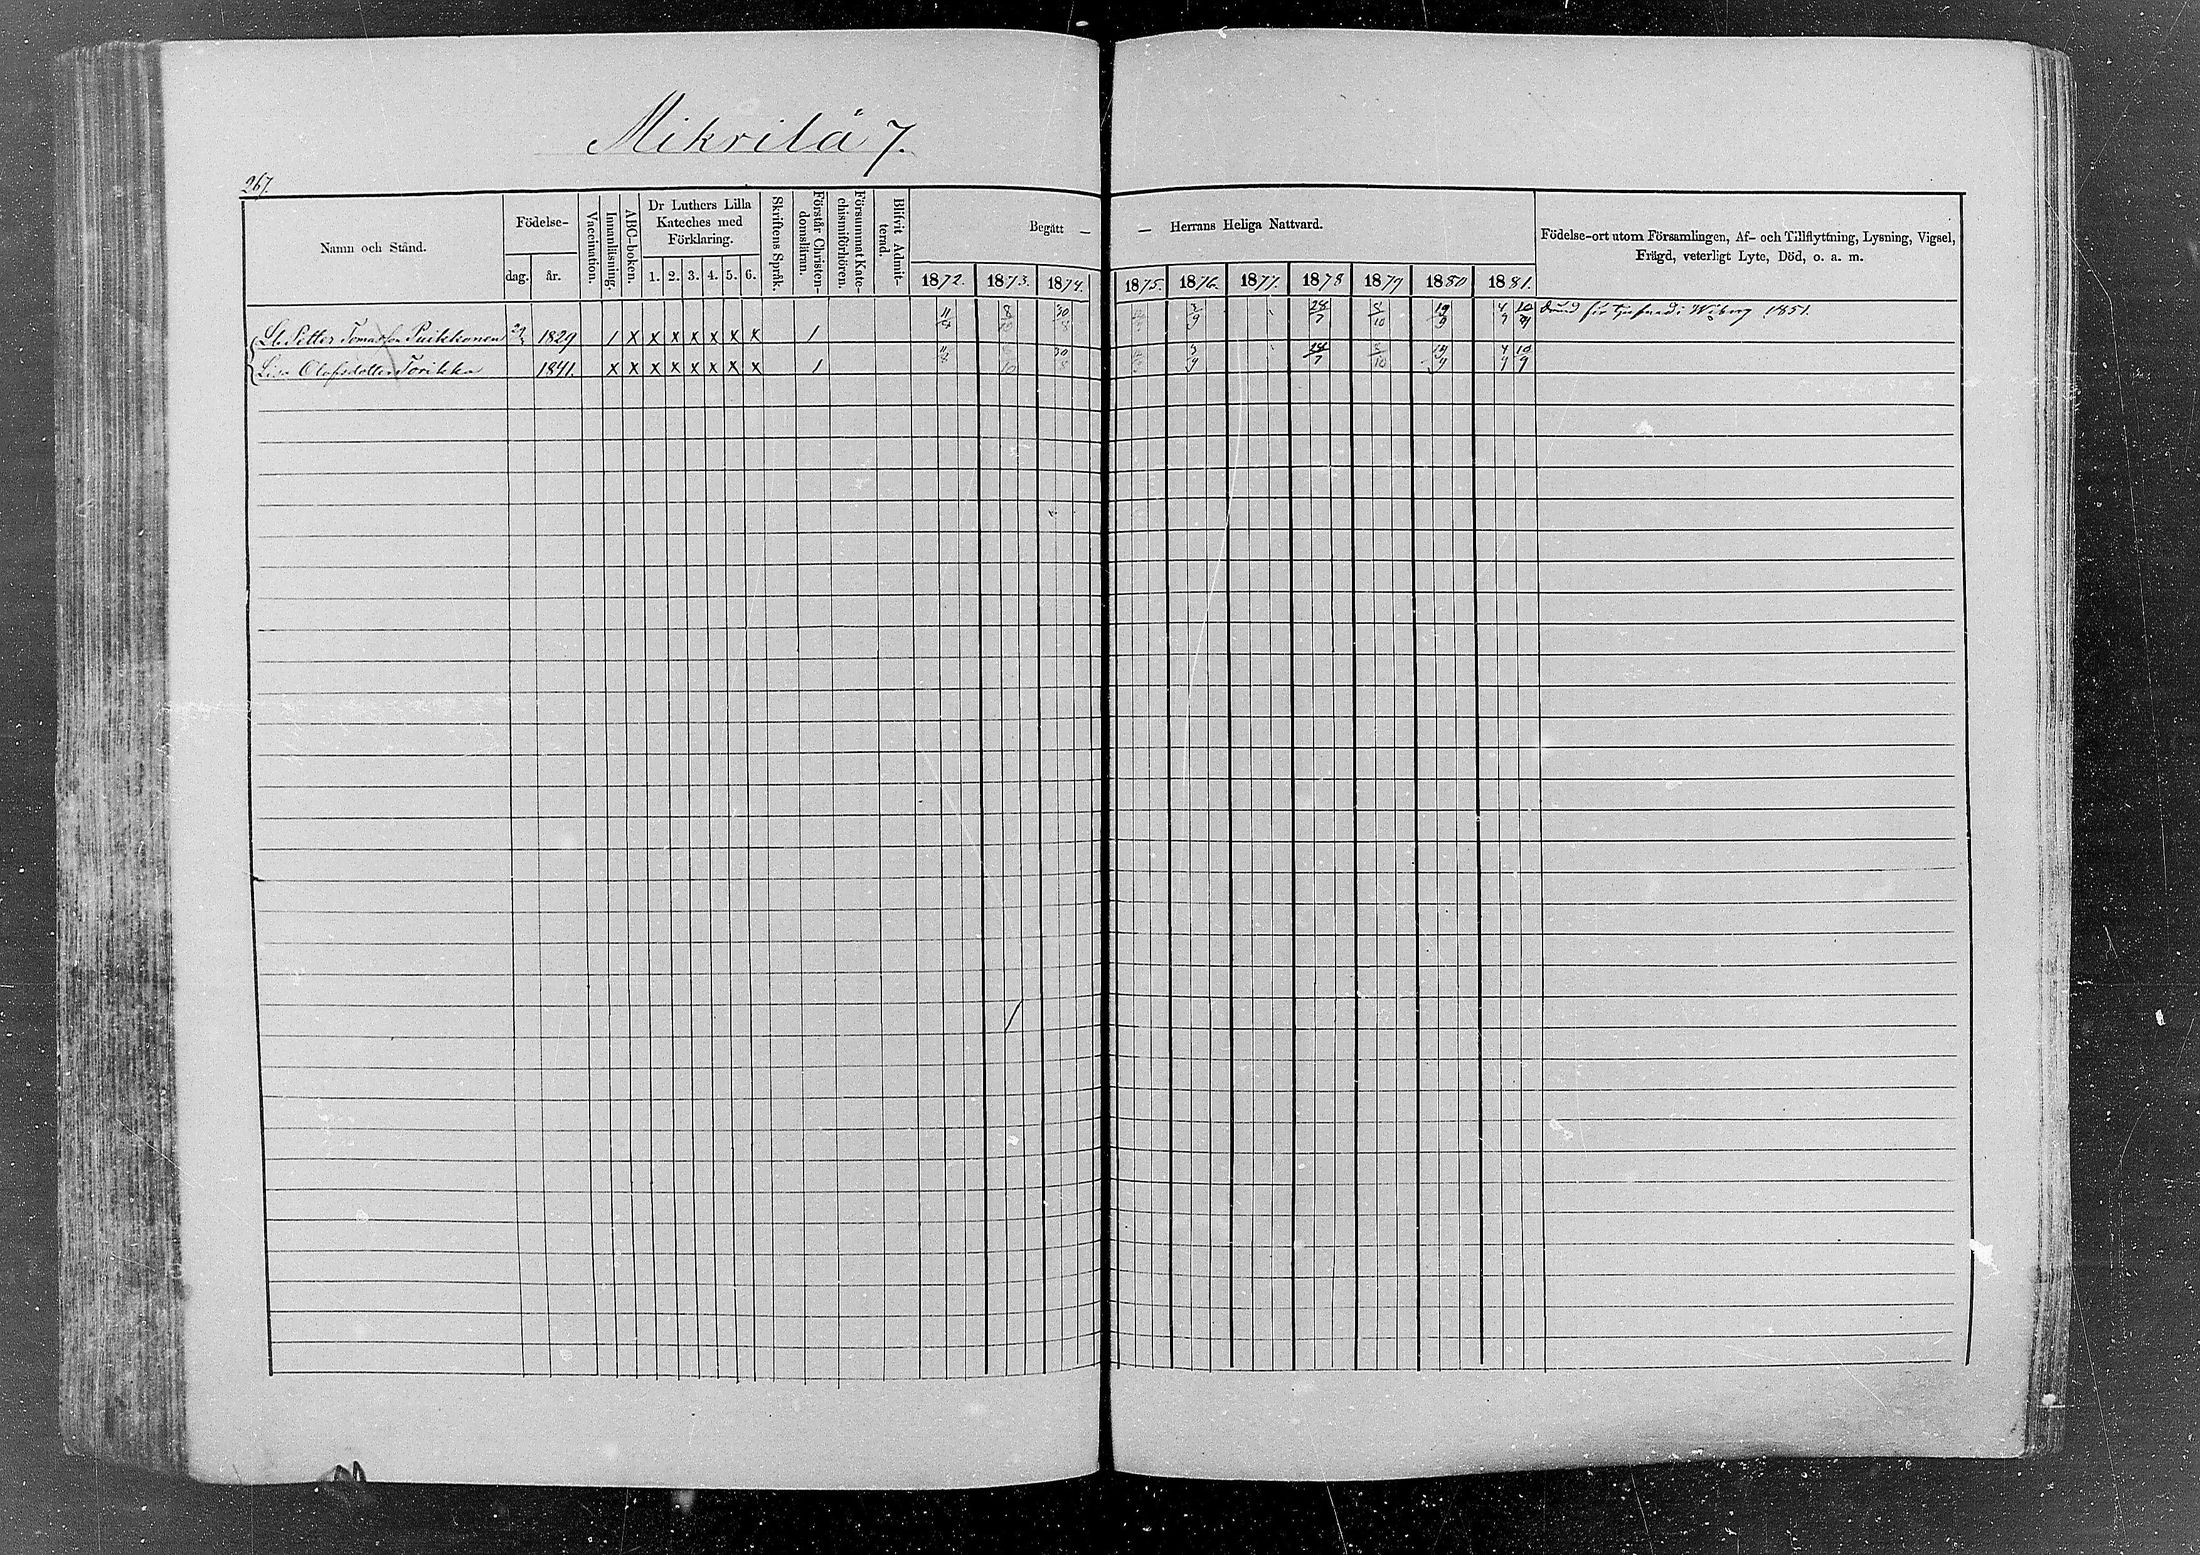 Mikrilä 7.
267.
Namn och Stånd.
Födelse-
dag. år.
Vaccination.
Innanläsning.
ABC-boken.
Dr Luthers Lilla
Kateches med
Förklaring.
1. 2. 3. 4. 5. 6.
Skriftens Språk.
Förstår Christen-
domsläran.
Försummat Kate-
chismiförhören.
Blifvit Admit-
terad.
Begått — — Herrans Heliga Nattvard.
1872. 1873. 1874. 1875. 1876. 1877. 1878 1879 1880 1881.
Födelse-ort utom Församlingen, Af- och Tillflyttning, Lysning, Vigsel,
Frägd, veterligt Lyte, Död, o. a. m.
Petter Tomasson Puikkonen 1829 1 x x x x x x x 1 11/8 8/10 30/8 3/9 28/7 5/10 19/9 4/9 10/9 för i Wiborg 1851.
Lisa Olofsdotter Torikka 1841. x x x x x x x x 1 11/8 30/8 3/9 28/7 5/10 19/9 4/9 10/9